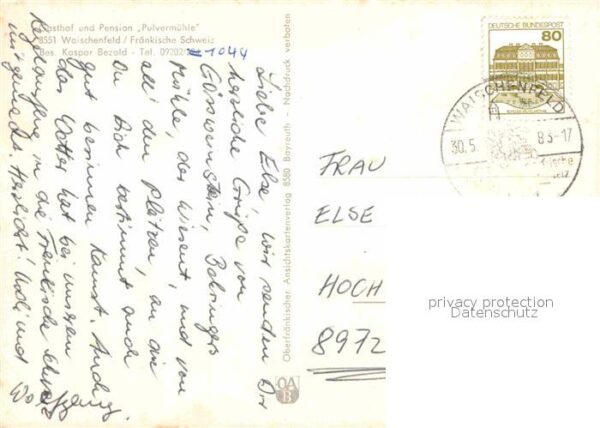 Gasthof und Pension „Pulvermühle"
8551 Waischenfeld / Fränkische Schweiz
Bes. Kaspar Bezold - Tel. 09202/1044
Liebe Else, wir senden Dir
herzliche Grüße von
Gössweinstein, Behringers
Mühle, der Wiesent, und von
all' den Plätzen, an die
Du Dich bestimmt auch
gut besinnen kannst. Auch
das Wetter hat bei unserem
in die Fränkische Schweiz
mitgemacht. Herzlichst! und
Wolfgang
Oberfränkischer Ansichtskartenverlag 8580 Bayreuth - Nachdruck verboten
OA
B
DEUTSCHE BUNDESPOST
80
WAISCHENFELD
30.5. 83-17
FRAU
ELSE
HOCH
8972
privacy protection
Datenschutz